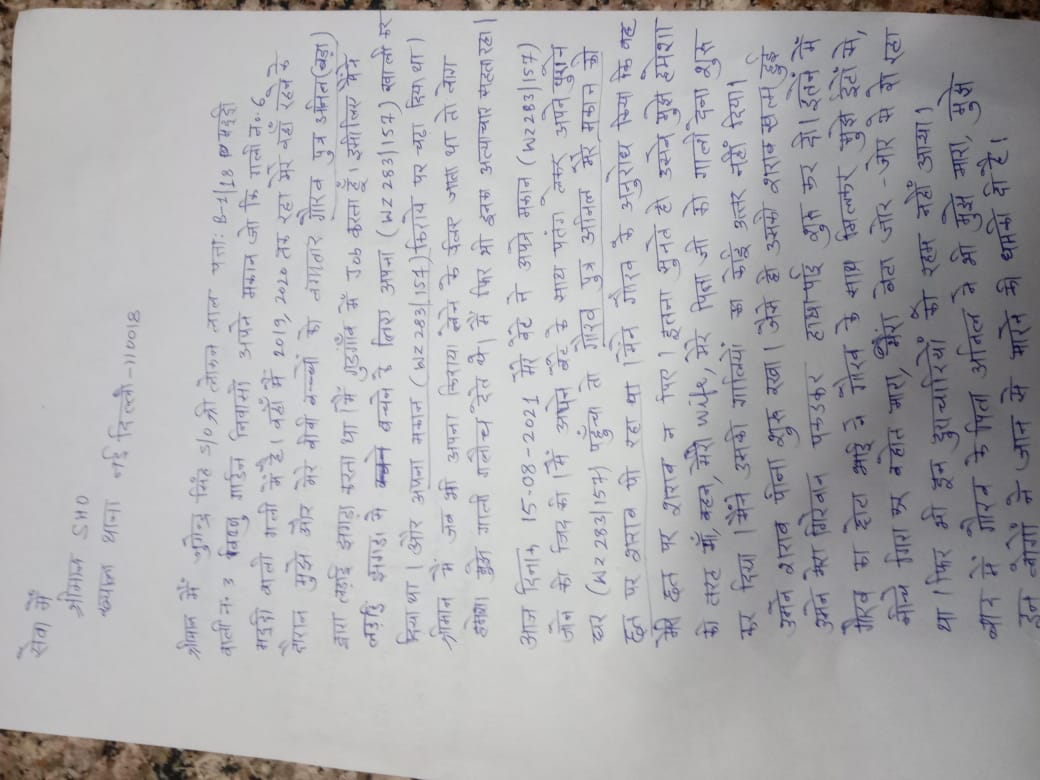 सेवा में
श्रीमान SHO
ख्याला थाना नई दिल्ली-110018
श्रीमान मैं जुगेन्द्र सिंह S/O श्री लोकमन लाल पता: B-2/18 मड्डी
गली न. 3 विष्णु गार्डन निवासी। अपने मकान जो कि गली न. 6
मड्डी वाली गली में है। वहाँ मैं 2019, 2020 तक रहा मेरे वहाँ रहने के
दौरान मुझे और मेरे बीवी बच्चों को लगातार गौरव पुत्र अनिल (बड़ा)
द्वारा लड़ाई झगड़ा करता था। मैं गुड़गाँव में Job करता हूँ। इसलिए मैंने
लड़ाई झगड़ा से बचाने के लिए अपना (WZ 283/157) खाली कर
दिया था। और अपना मकान (WZ 283/157) किराये पर चढ़ा दिया था।
श्रीमान मैं जब भी अपना किराया लेने के लिए जाता था तो लोग
हमेशा मुझे गाली गलौच देते थे। मैं फिर भी इनके अत्याचार सहता रहा।
आज दिनांक 15-08-2021 मेरे बेटे ने अपने मकान (WZ 283/157)
जाने की जिद की। मैं अपने बेटे के साथ पतंगे लेकर अपने पुराने
घर (WZ 283/157) पहुँचा तो गौरव पुत्र अनिल मेरे मकान की
छत पर शराब पी रहा था। मैंने गौरव से अनुरोध किया कि वह
मेरे छत पर शराब न पिए। इतना सुनते ही उसने मुझे हमेशा
की तरह माँ, बहन, मेरी wife, मेरे पिता जी को गाली देना शुरू
कर दिया। मैंने उसकी गालियों का कोई उत्तर नहीं दिया।
उसने शराब पीना शुरू रखा। जैसे ही उसकी शराब खत्म हुई
उसने मेरा गिरेबान पकड़कर हाथापाई शुरू कर दी। इतने में
गौरव का छोटा भाई ने गौरव के साथ मिलकर मुझे ईंटों से,
नीचे गिरा कर बहुत मारा, मेरा बेटा जोर-जोर से रो रहा
था। फिर भी इन दुराचारियों को रहम नहीं आया।
बाद में गौरव के पिता अनिल ने भी मुझे मारा, मुझे
इन लोगों ने जान से मारने की धमकी दी है।